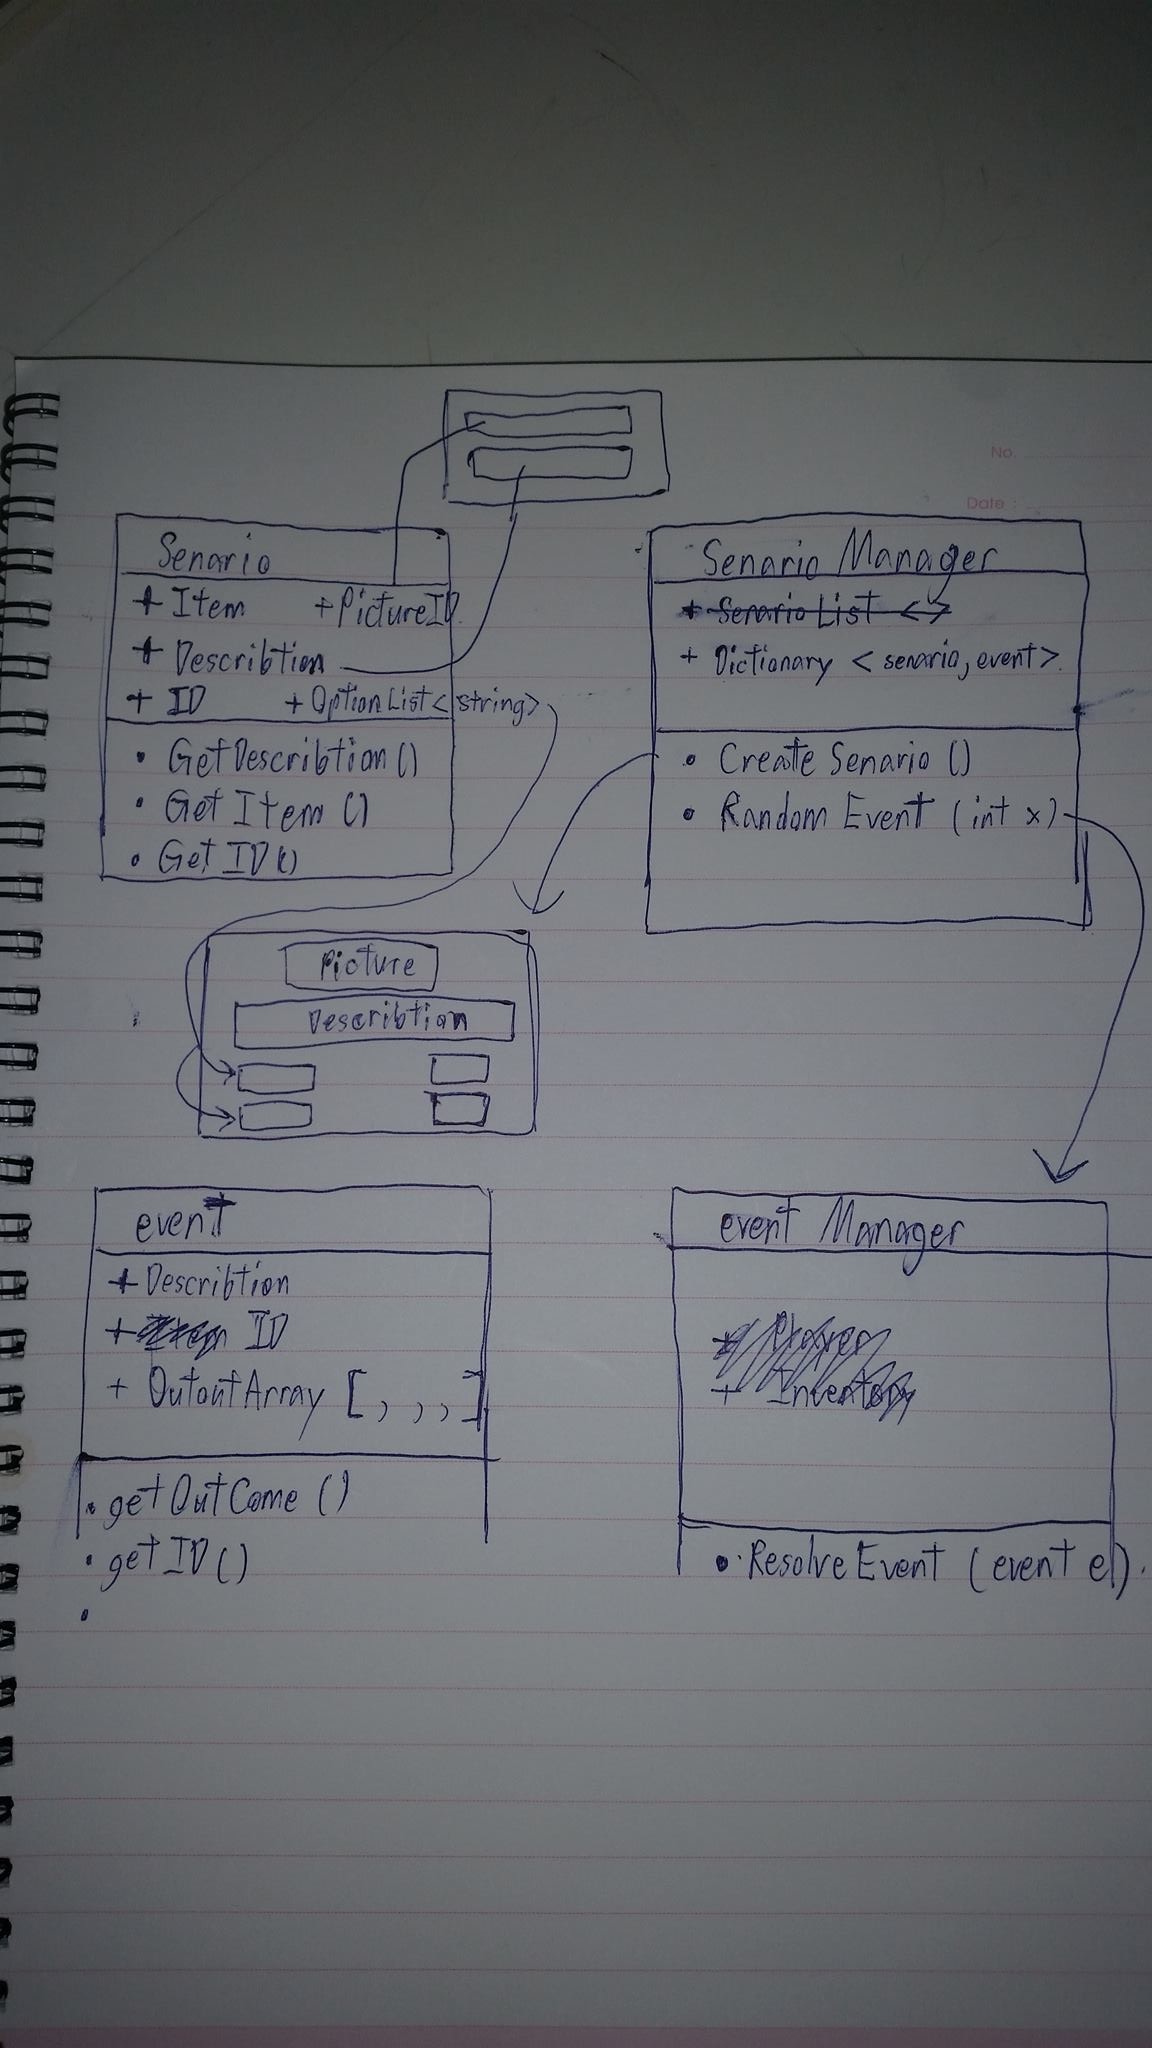 No.
Date :
Senario
+ Item +PictureID
+ Describtion
+ ID + OptionList<string>
• GetDescribtion()
• Get Item ()
• Get ID()
Senario Manager
+ Senario List <>
+ Dictionary < senario, event>
• Create Senario ()
• Random Event (int x)
Picture
Describtion
event
+ Describtion
+ ID
+ OutoutArray [, , , ]
• getOutCome ()
• getID()
•
event Manager
+ Inventory
• Resolve Event (event e)